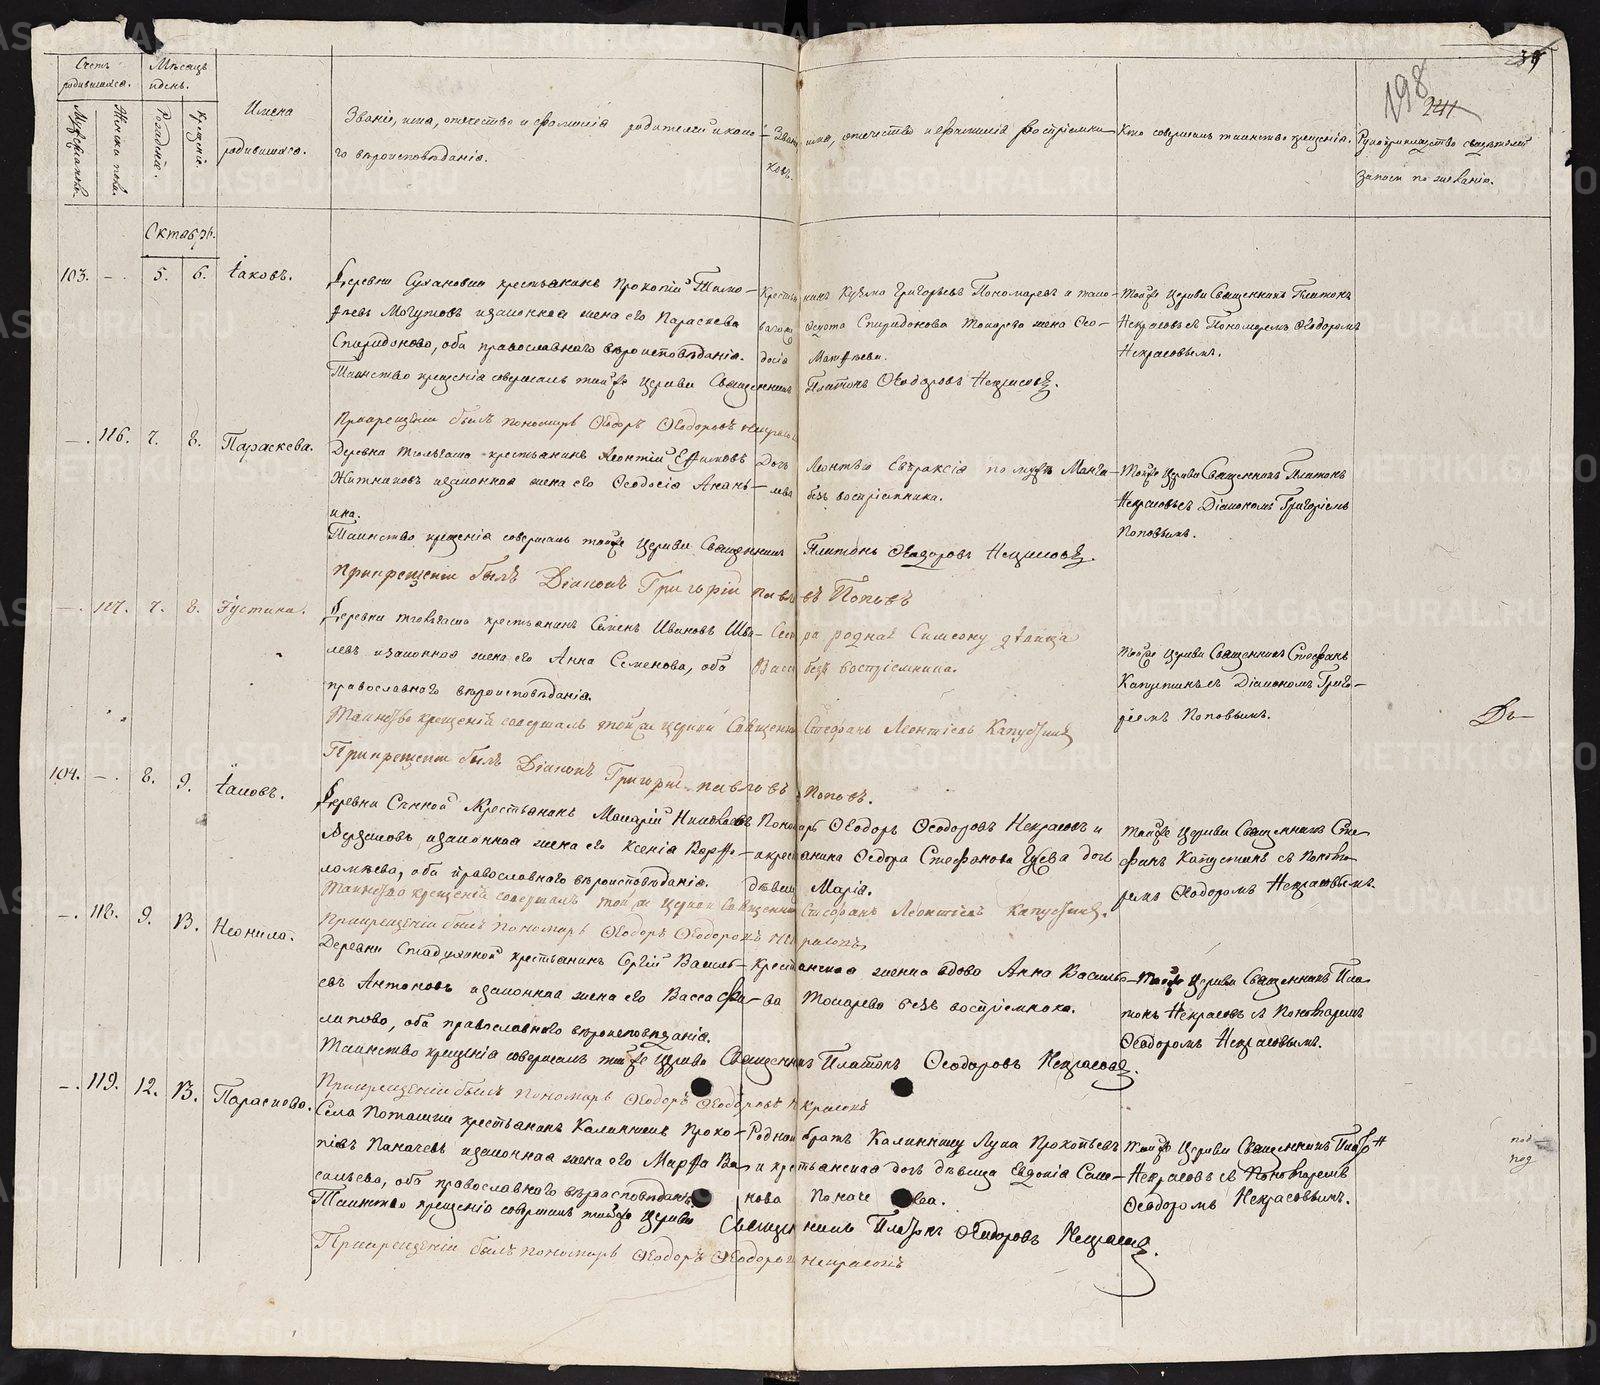 198
241
Счетъ родившихся.
Мѣсяцъ и день.
Мужеска пола.
Женска пола.
Рожденіе.
Крещеніе.
Имена родившихся.
Званіе, имя, отечество и фамилія родителей и како-
го вѣроисповѣданія.
Званіе имя, отечество и фамилія воспріемни-
ковъ.
Кто совершалъ таинство крещенія.
Рукоприкладство свидѣтелей
записи по желанію.
Октябрь.
103. – 5. 6. Іаковъ.
Деревни Сухановки крестьянинъ Прокопій Тимо-
феевъ Могутовъ и законная жена его Параскева
Спиридонова, оба православнаго вѣроисповѣданія.
Крестьянинъ Кузма Григорьевъ Пономаревъ и
Спиридонова Токарева жена Ѳео-
досія Матѳеева.
Тойже Церкви Священникъ Платонъ
Некрасовъ съ Пономаремъ Ѳеодоромъ
Некрасовымъ.
Таинство крещенія совершалъ тойже Церкви Священникъ Платонъ Ѳеодоровъ Некрасовъ.
При крещеніи былъ пономарь Ѳеодоръ Ѳеодоровъ Некрасовъ
– 116. 7. 8. Параскева.
Деревни крестьянинъ Леонтій Ефимовъ
Житниковъ и законная жена его Ѳеодосія Анань-
ина.
Дочь Леонтью Евпраксія по мужѣ
безъ воспріемника.
Тойже Церкви Священникъ Платонъ
Некрасовъ съ Діакономъ Григоріемъ
Поповымъ.
Таинство крещенія совершалъ тойже Церкви Священникъ Платонъ Ѳеодоровъ Некрасовъ.
При крещеніи былъ Діаконъ Григорій Павловъ Поповъ
– 117. 7. 8. Іустина.
Деревни крестьянинъ Семенъ Ивановъ
и законная жена его Анна Семенова, оба
православнаго вѣроисповѣданія.
Сестра родная Симеону дѣвица
Васса безъ воспріемника.
Тойже Церкви Священникъ Стефанъ
Капустинъ съ Діакономъ Григо-
ріемъ Поповымъ.
Таинство крещенія совершалъ тойже Церкви Священникъ Стефанъ Леонтіевъ Капустинъ
При крещеніи былъ Діаконъ Григорій Павловъ Поповъ.
104. – 8. 9. Іаковъ.
Деревни Сенной Крестьянинъ Макарій Николаевъ
и законная жена его Ксенія Варфо-
ломѣева, оба православнаго вѣроисповѣданія.
Пономарь Ѳеодоръ Ѳеодоровъ Некрасовъ и
крестьянина Ѳедора Стефанова Гусева дочь
дѣвица Марія.
Тойже Церкви Священникъ Сте-
фанъ Капустинъ съ Поно-
ремъ Ѳеодоромъ Некрасовымъ.
Таинство крещенія совершалъ тойже Церкви Священникъ Стефанъ Леонтіевъ Капустинъ.
При крещеніи былъ Пономарь Ѳеодоръ Ѳеодоровъ Некрасовъ
– 118. 9. В. Неонила.
Деревни Стадухиной крестьянинъ Сергій Василь-
евъ Антоновъ и законная жена его Васса Фи-
липова, оба православнаго вѣроисповѣданія.
Крестьянская женка вдова Анна Василье-
ва Токарева безъ воспріемника.
Тойже Церкви Священникъ Пла-
тонъ Некрасовъ съ Пономаремъ
Ѳеодоромъ Некрасовымъ.
Таинство крещенія совершалъ тойже Церкви Священникъ Платонъ Ѳеодоровъ Некрасовъ.
При крещеніи былъ Пономарь Ѳеодоръ Ѳеодоровъ Некрасовъ
– 119. 12. В. Параскева.
Села Поташки крестьянинъ Калинникъ Проко-
піевъ Паначевъ и законная жена его Марфа Ва-
сильева, оба православнаго вѣроисповѣданія.
Родной братъ Калиннику Лука Прокопьевъ
и крестьянская дочь дѣвица Евдокія Семе-
нова
Тойже Церкви Священникъ Платонъ
Некрасовъ съ Пономаремъ
Ѳеодоромъ Некрасовымъ.
Таинство крещенія совершалъ тойже Церкви Священникъ Платонъ Ѳеодоровъ Некрасовъ.
При крещеніи былъ пономарь Ѳеодоръ Ѳеодоровъ Некрасовъ
METRIKI.GASO-URAL.RU